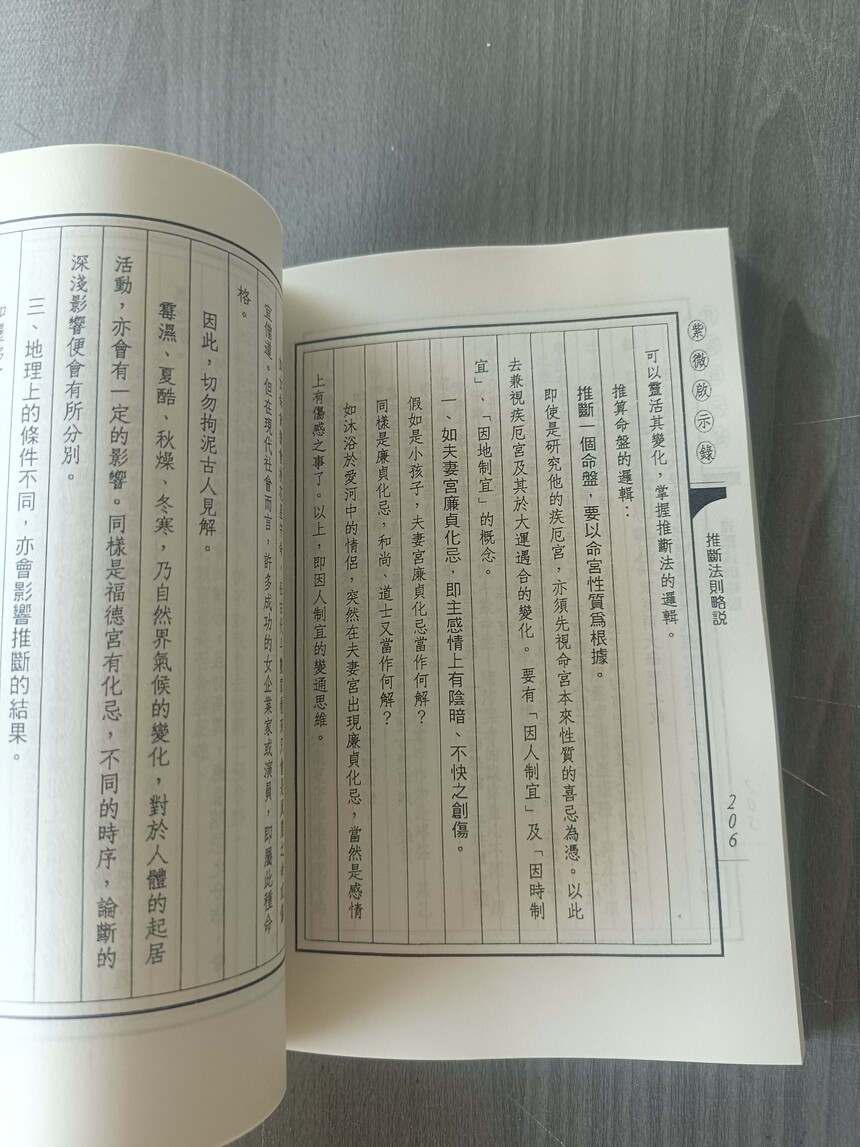 紫微啟示錄
推斷法則略説
206
可以靈活其變化，掌握推斷法的邏輯。
推算命盤的邏輯：
推斷一個命盤，要以命宮性質爲根據。
即使是研究他的疾厄宮，亦須先視命宮本來性質的喜忌為憑。以此
去兼視疾厄宮及其於大運遇合的變化。要有「因人制宜」及「因時制
宜」、「因地制宜」的概念。
一、如夫妻宮廉貞化忌，即主感情上有陰暗、不快之創傷。
假如是小孩子，夫妻宮廉貞化忌當作何解？
同樣是廉貞化忌，和尚、道士又當作何解？
如沐浴於愛河中的情侶，突然在夫妻宮出現廉貞化忌，當然是感情
上有傷感之事了。以上，即因人制宜的變通思維。
宜僧道。但在現代社會而言，許多成功的女企業家或演員，即屬此種命
格。
因此，切勿拘泥古人見解。
霉濕、夏酷、秋燥、冬寒，乃自然界氣候的變化，對於人體的起居
活動，亦會有一定的影響。同樣是福德宮有化忌，不同的時序，論斷的
深淺影響便會有所分別。
三、地理上的條件不同，亦會影響推斷的結果。